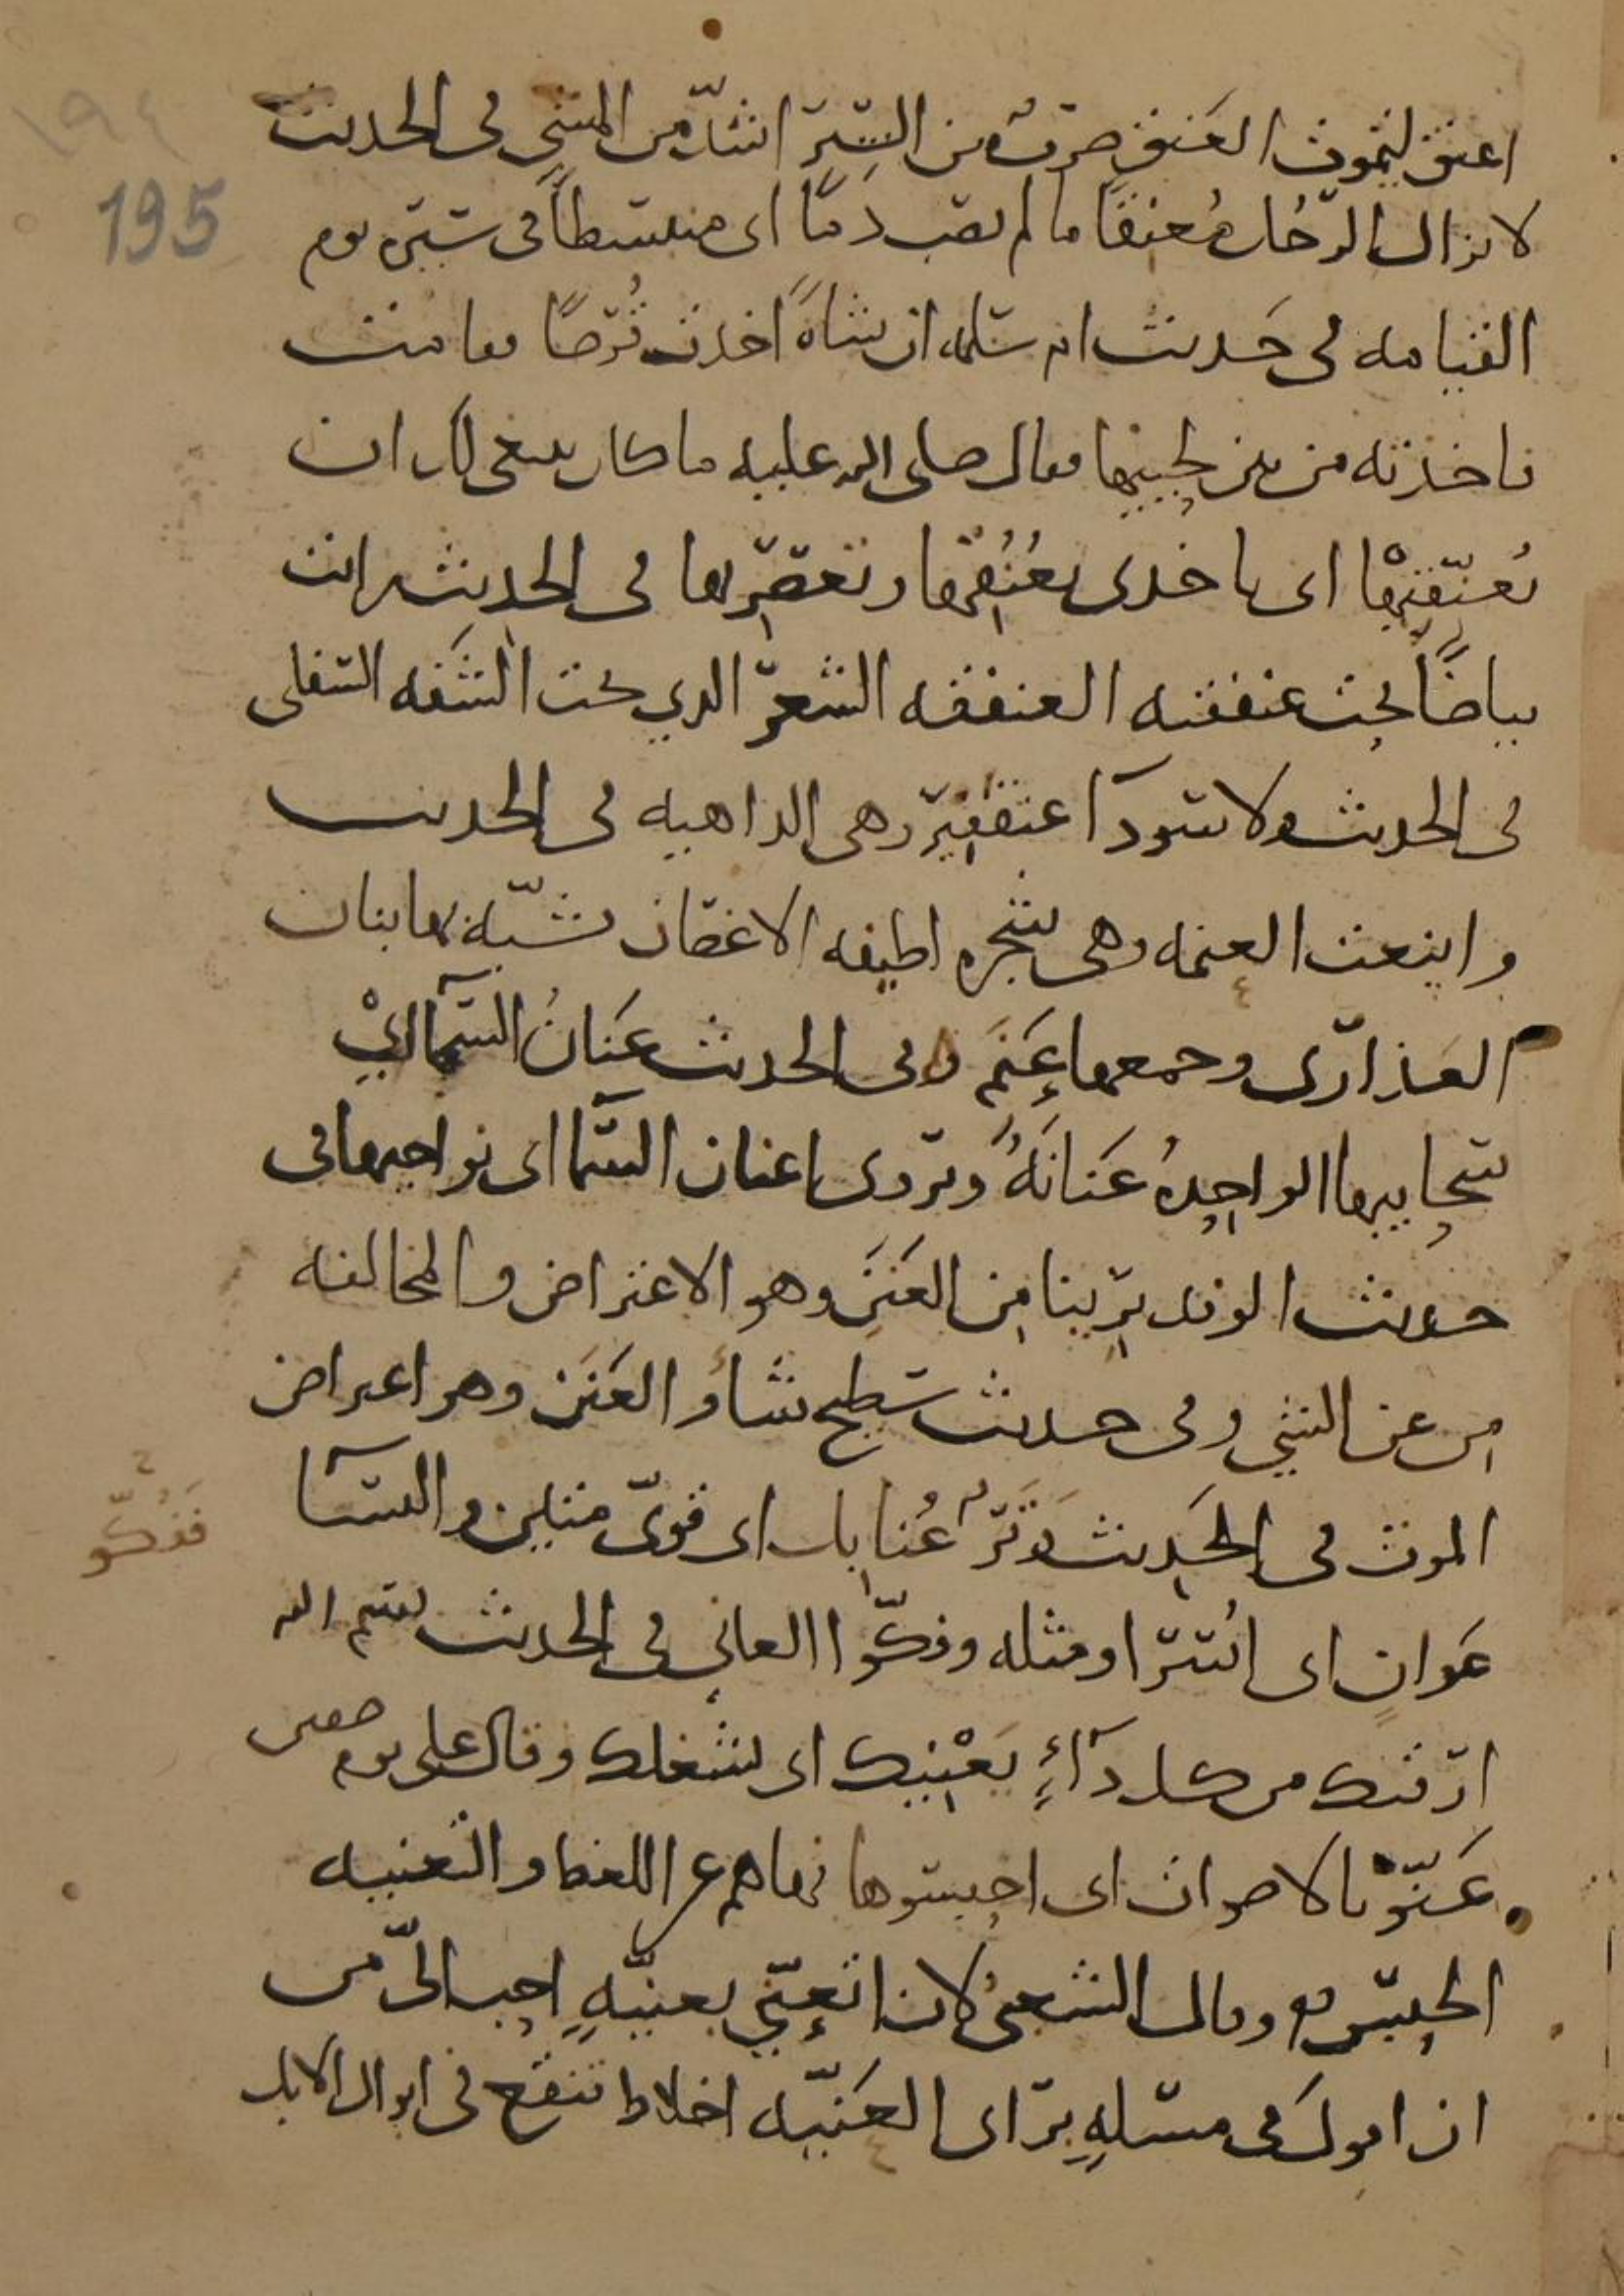 ١٩٤
195
اعنق ليموت العَنَق ضرب من السَّيرِ اشدّ من المشي في الحديث
لا يزال الرّجُل مُعنِقًا ما لم يصب دمًا اى منبسطًا في سَيره يوم
القيامه في حَديث ام سَلمه ان شاةً اخذت قُرصًا فقامت
فاخذته من بين لِحييها فقال صلى الله عليه ما كان ينبغي لك ان
تُعنّقِيها اى تاخذى بعُنُقِها وتعصِريها في الحديث رايت
بياضًا تحت عنفقته العنفقه الشعرُ الذي تحت الشَفه السّفلى
في الحديث ولا سَودآ عنقفير وهي الداهيه في الحديث
واينعت العنمه وهي شجره لطيفه الاغصان تشبّه بها بنان
العَذارى وجمعها عَنَم وفي الحديث عَنَانُ السّمآ اي
سَحابها الواحِدهُ عَنَانَهُ ويروى اعنان السّما اى نواحيها في
حديث الوفد برِينا مِن العَنَنَ وهو الاعتراض والمخالفه
مِن عن الشي وفي حديث سَطيح شأو العَنَن وهو اعتراض
الموت في الحَدِيث
عَوانٍ اى اُسَرا ومثله وفكّوا العاني في الحديث بسم الله
ارقيك من كل دآءٍ يَعْنِيك اى يشغلك وقال على يوم صفين
عَنّوا بالاصوات اى احبِسُوها نهاهم عن اللغط والتعنيه
الحبِسُ وقال الشعبيُ لان اتعنّي بعنيّهٍ احب الىّ من
ان اقولَ في مسَلهٍ برَاى العَنيّه اخلاط تنقع في ابوال الابل
فَفُكّو